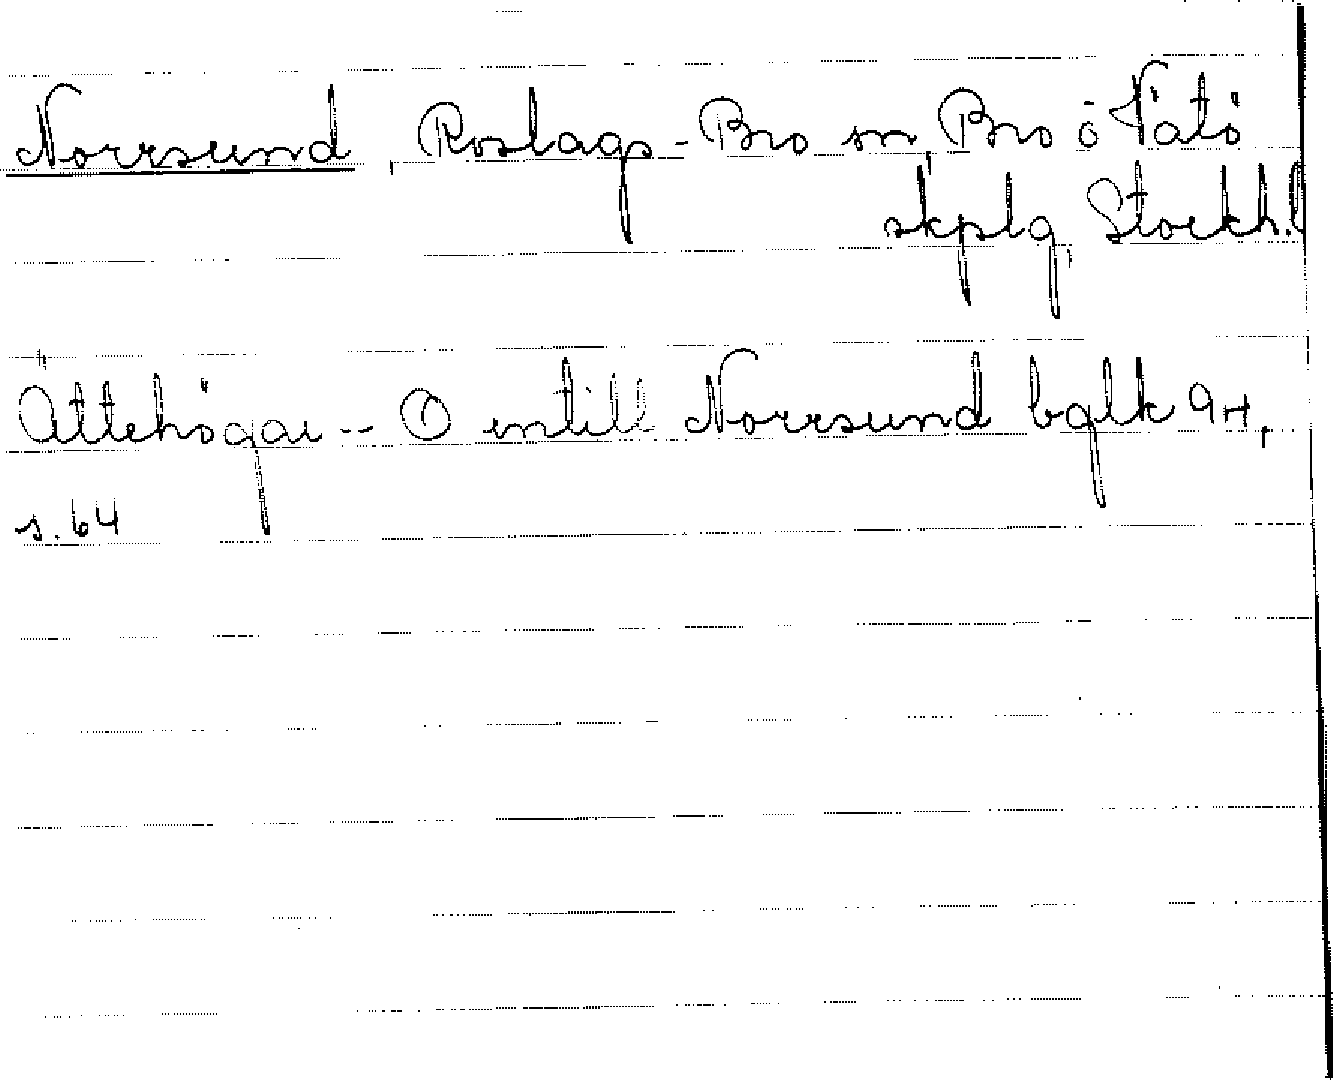 Norrsund, Roslags-Bro sn, Bro o Vätö
skplg, Stockh.l
Ättehögar -- O intill Norrsund bglk 9H,
s.64